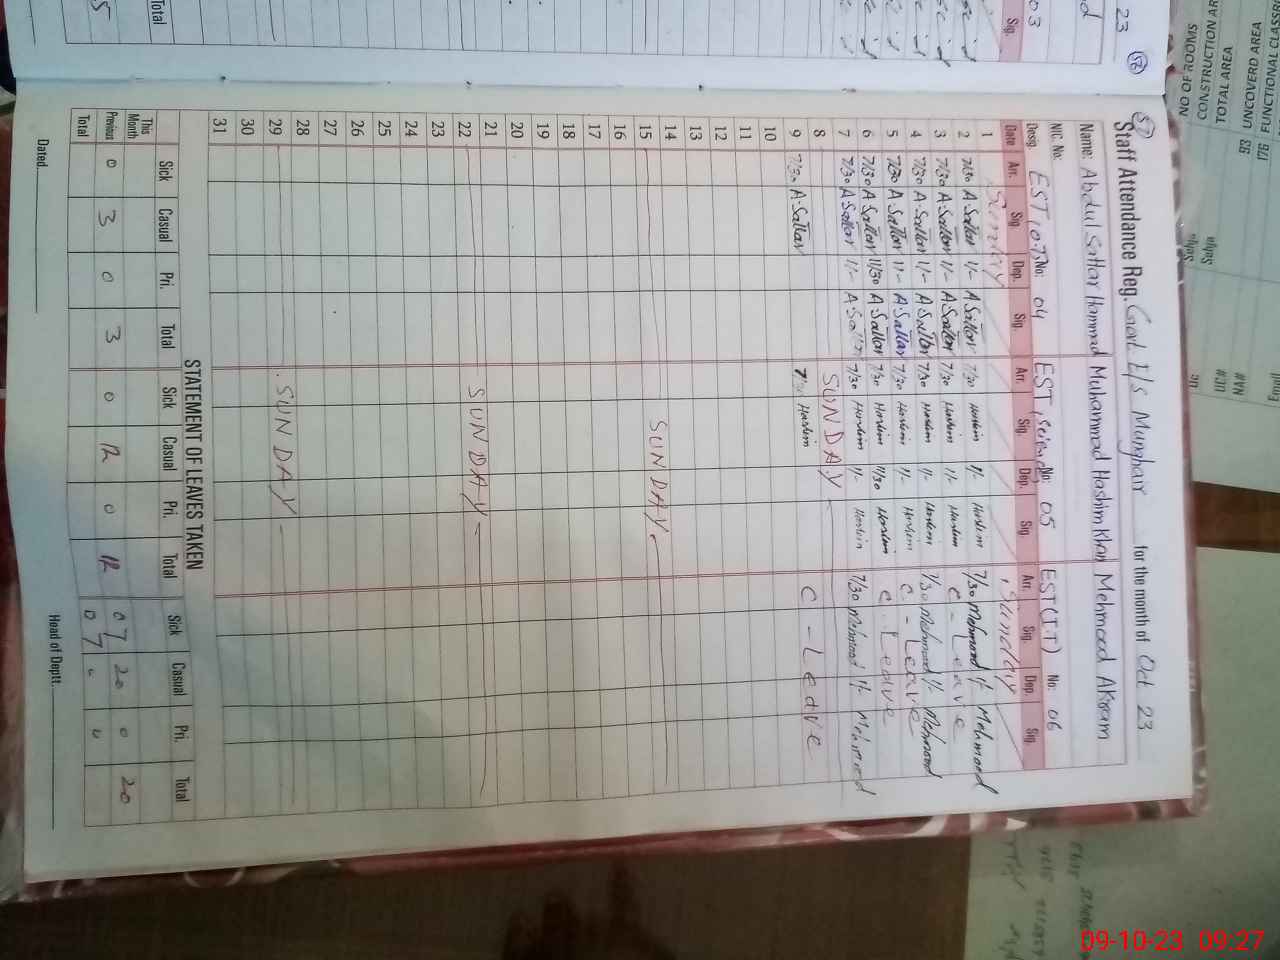 57
Staff Attendance Reg. Govt. E/S Munghair for the month of Oct 23
Name: Abdul Sattar Hammad Muhammad Hashim Khan Mehmood Akram
NIC. No:
Desig. EST (O.T) No: 04 EST, Science No: 05 EST (I.T) No: 06
Date Arr. Sig. Dep. Sig. Arr. Sig. Dep. Sig. Arr. Sig. Dep. Sig.
1 Sunday Sunday
2 7/30 A-Sattar 1/- A Sattar 7/30 Hashim 1/- Hashim 7/30 Mehmood 1/- Mehmood
3 7/30 A-Sattar 1/- A Sattar 7/30 Hashim 1/- Hashim C - Leave
4 7/30 A-Sattar 1/- A Sattar 7/30 Hashim 1/- Hashim 7/30 Mehmood 1/- Mehmood
5 7/30 A-Sattar 1/- A Sattar 7/30 Hashim 1/- Hashim C - Leave
6 7/30 A-Sattar 11/30 A-Sattar 7/30 Hashim 11/30 Hashim C. Leave
7 7/30 A Sattar 1/- A Sattar 7/30 Hashim 1/- Hashim 7/30 Mehmood 1/- Mehmood
8 SUNDAY
9 7/30 A-Sattar Hashim C - Leave
10
11
12
13
14
15 SUNDAY
16
17
18
19
20
21
22 SUNDAY
23
24
25
26
27
28
29 SUNDAY
30
31
STATEMENT OF LEAVES TAKEN
Sick Casual Pri. Total Sick Casual Pri. Total Sick Casual Pri. Total
This Month
Previous 0 3 0 3 0 12 0 12 07 20 0 20
Total 07
Dated. Head of Deptt.
23 58
03
Sig.
Total
NO OF ROOMS
CONSTRUCTION AR
TOTAL AREA
UNCOVERD AREA
93
FUNCTIONAL CLASSR
176
UC#
NA#
Email
09-10-23 09:27